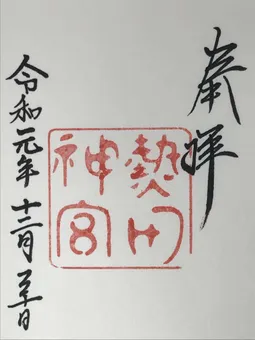 奉拝
熱田神宮
令和元年十二月日